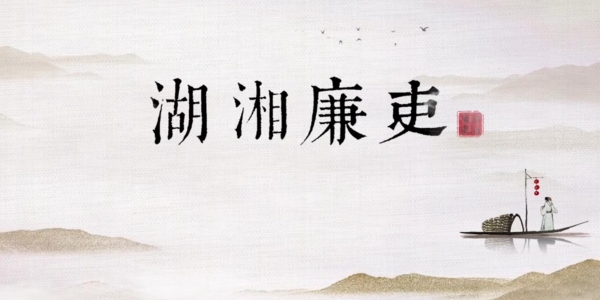 湖湘廉吏